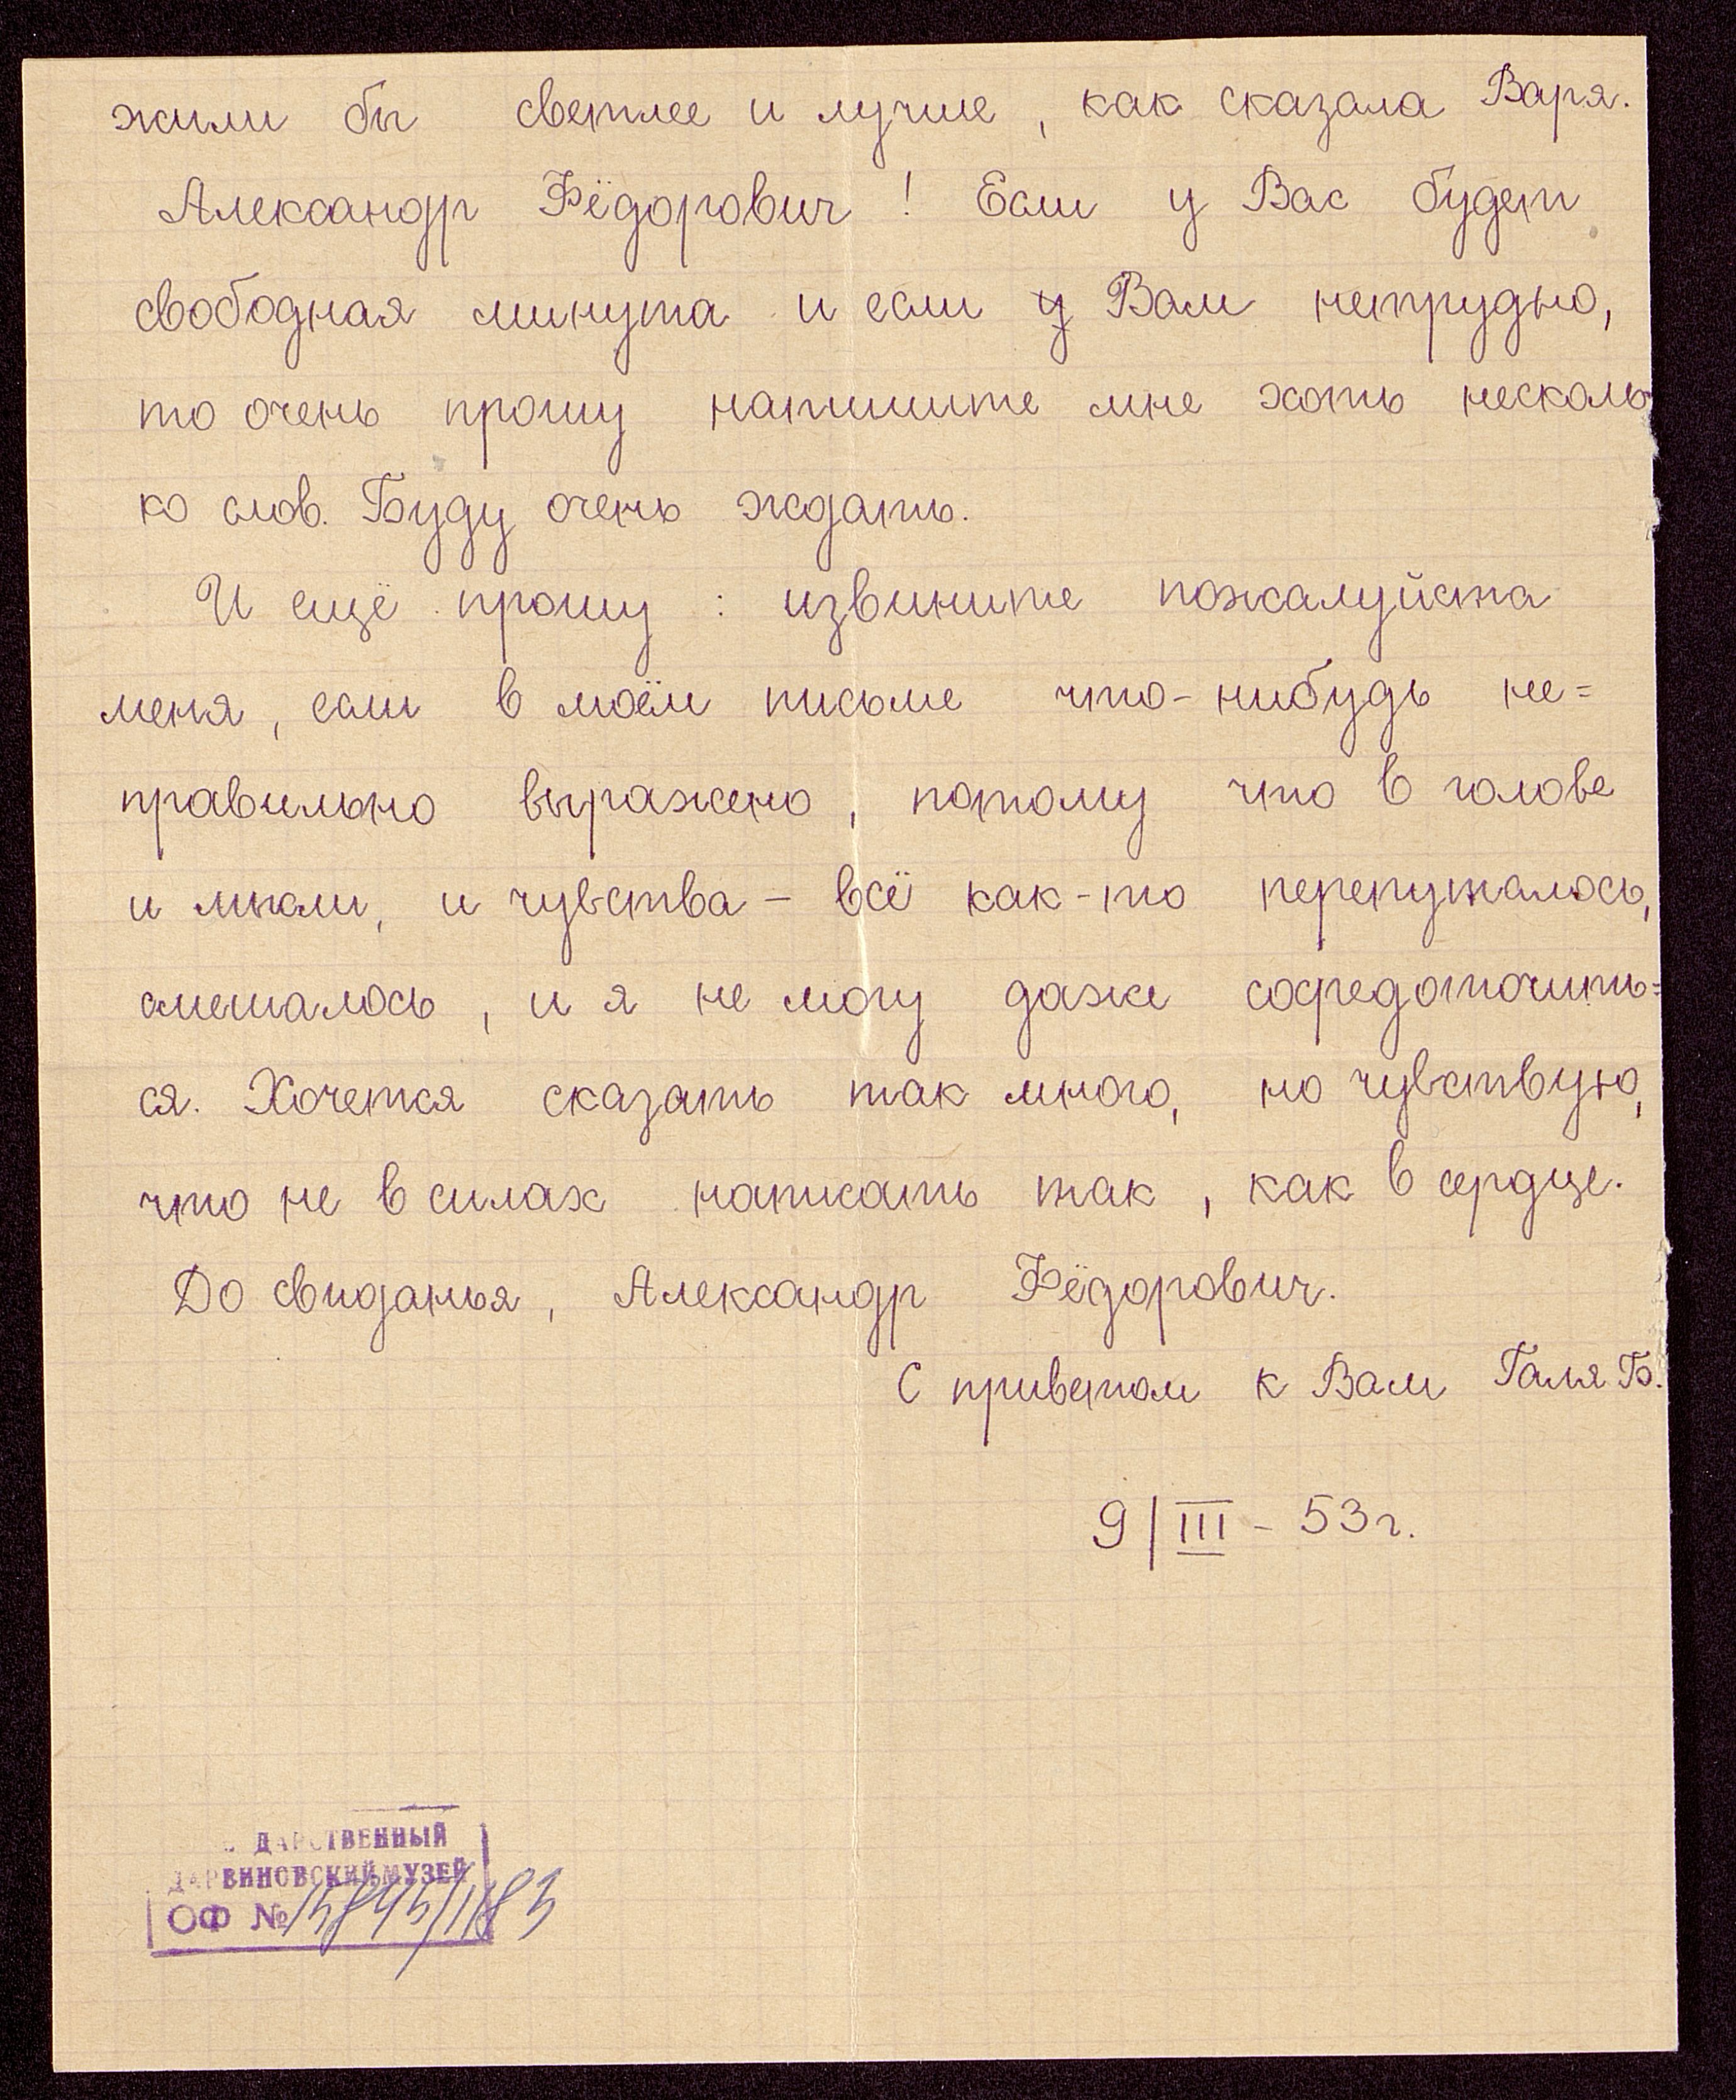 жили бы светлее и лучше, как сказала Варя.
Александр Фёдорович! Если у Вас будет
свободная минута и если у Вам нетрудно,
то очень прошу напишите мне хоть несколь
ко слов. Буду очень ждать.
И ещё прошу: извините пожалуйста
меня, если в моём письме что-нибудь не=
правильно выражено, потому что в голове
и мысли, и чувства – всё как-то перепуталось,
смешалось, и я не могу даже сосредоточить=
ся. Хочется сказать так много, но чувствую,
что не в силах написать так, как в сердце.
До свиданья, Александр Фёдорович.
С приветом к Вам Галя Б.
9/III – 53 г.
ДАРСТВЕННЫЙ
ДАРВИНОВСКИЙ МУЗЕЙ
ОФ №